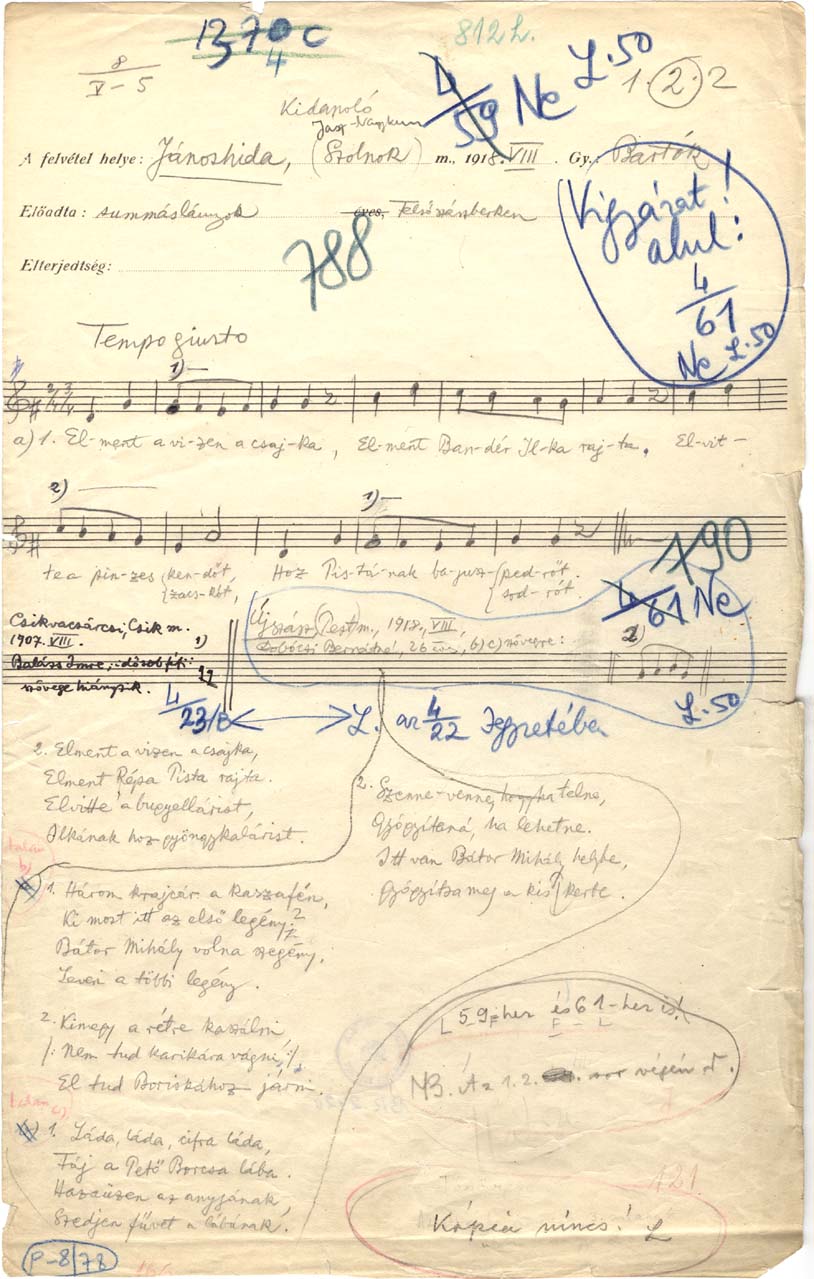 1370 c
4
812 L.
8
V-5
4
59 Ne L.50
1. 2. 2
Kidapoló
Jász-Nagykun
A felvétel helye: Jánoshida, (Szolnok) m., 1918. VIII. Gy.: Bartók
Előadta: summáslányok éves, Felsőszászberken
Elterjedtség:
788
Vigyázat!
alul:
4
61
Ne L.50
Tempo giusto
1)
2/4 3/4
a) 1. El-ment a vi-zen a csaj-ka, El-ment Ban-dér Il-ka raj-ta, El-vit-
2) 1)
te a pin-zes ken-dőt, Hoz Pis-tá-nak ba-jusz-ped-rőt.
zacs-kót, sod-rót.
790
4
61 Ne
Csikvacsárcsi, Csik m.
1907. VIII. 1)
Balázs Imre, idősb férfi
szövege hiányzik.
Újszász (Pest) m., 1918. VIII.
Bernátné, 26 éves, b) c) szövegre:
2)
L.50
4
23/B L. az 4
22 Jegyzetében
2. Elment a vizen a csajka,
Elment Répa Pista rajta.
Elvitte a bugyellárist,
Ilkának hoz gyöngykalárist.
2. Szenne-venne, hogyha telne,
Gyógyítaná, ha lehetne.
Itt van Bátor Mihály helybe,
Gyógyítsa meg a kis kerbe.
talán
b)
1. Három krajcár a kaszafén,
Ki most itt az első legény?
Bátor Mihály volna szegény,
Leveri a többi legény.
2. Kimegy a rétre kaszálni
/: Nem tud karikára vágni, :/
El tud Boriskához járni.
L 59-hez és 61-hez is!
F - L
NB. Az 1. 2. sor végén
talán
c)
1. Láda, láda, cifra láda,
Fáj a Pető Borcsa lába.
Hazaüzen az anyjának,
Szedjen füvet a lábának.
121
Kópia nincs! L
P-8/78